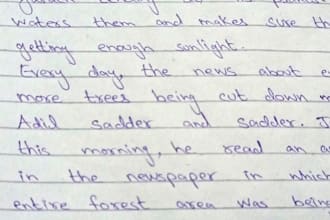 waters them and makes sure
getting enough sunlight.
Every day, the news about
more trees being cut down
Adil sadder and sadder.
this morning, he read an
in the newspaper in which
entire forest area was being